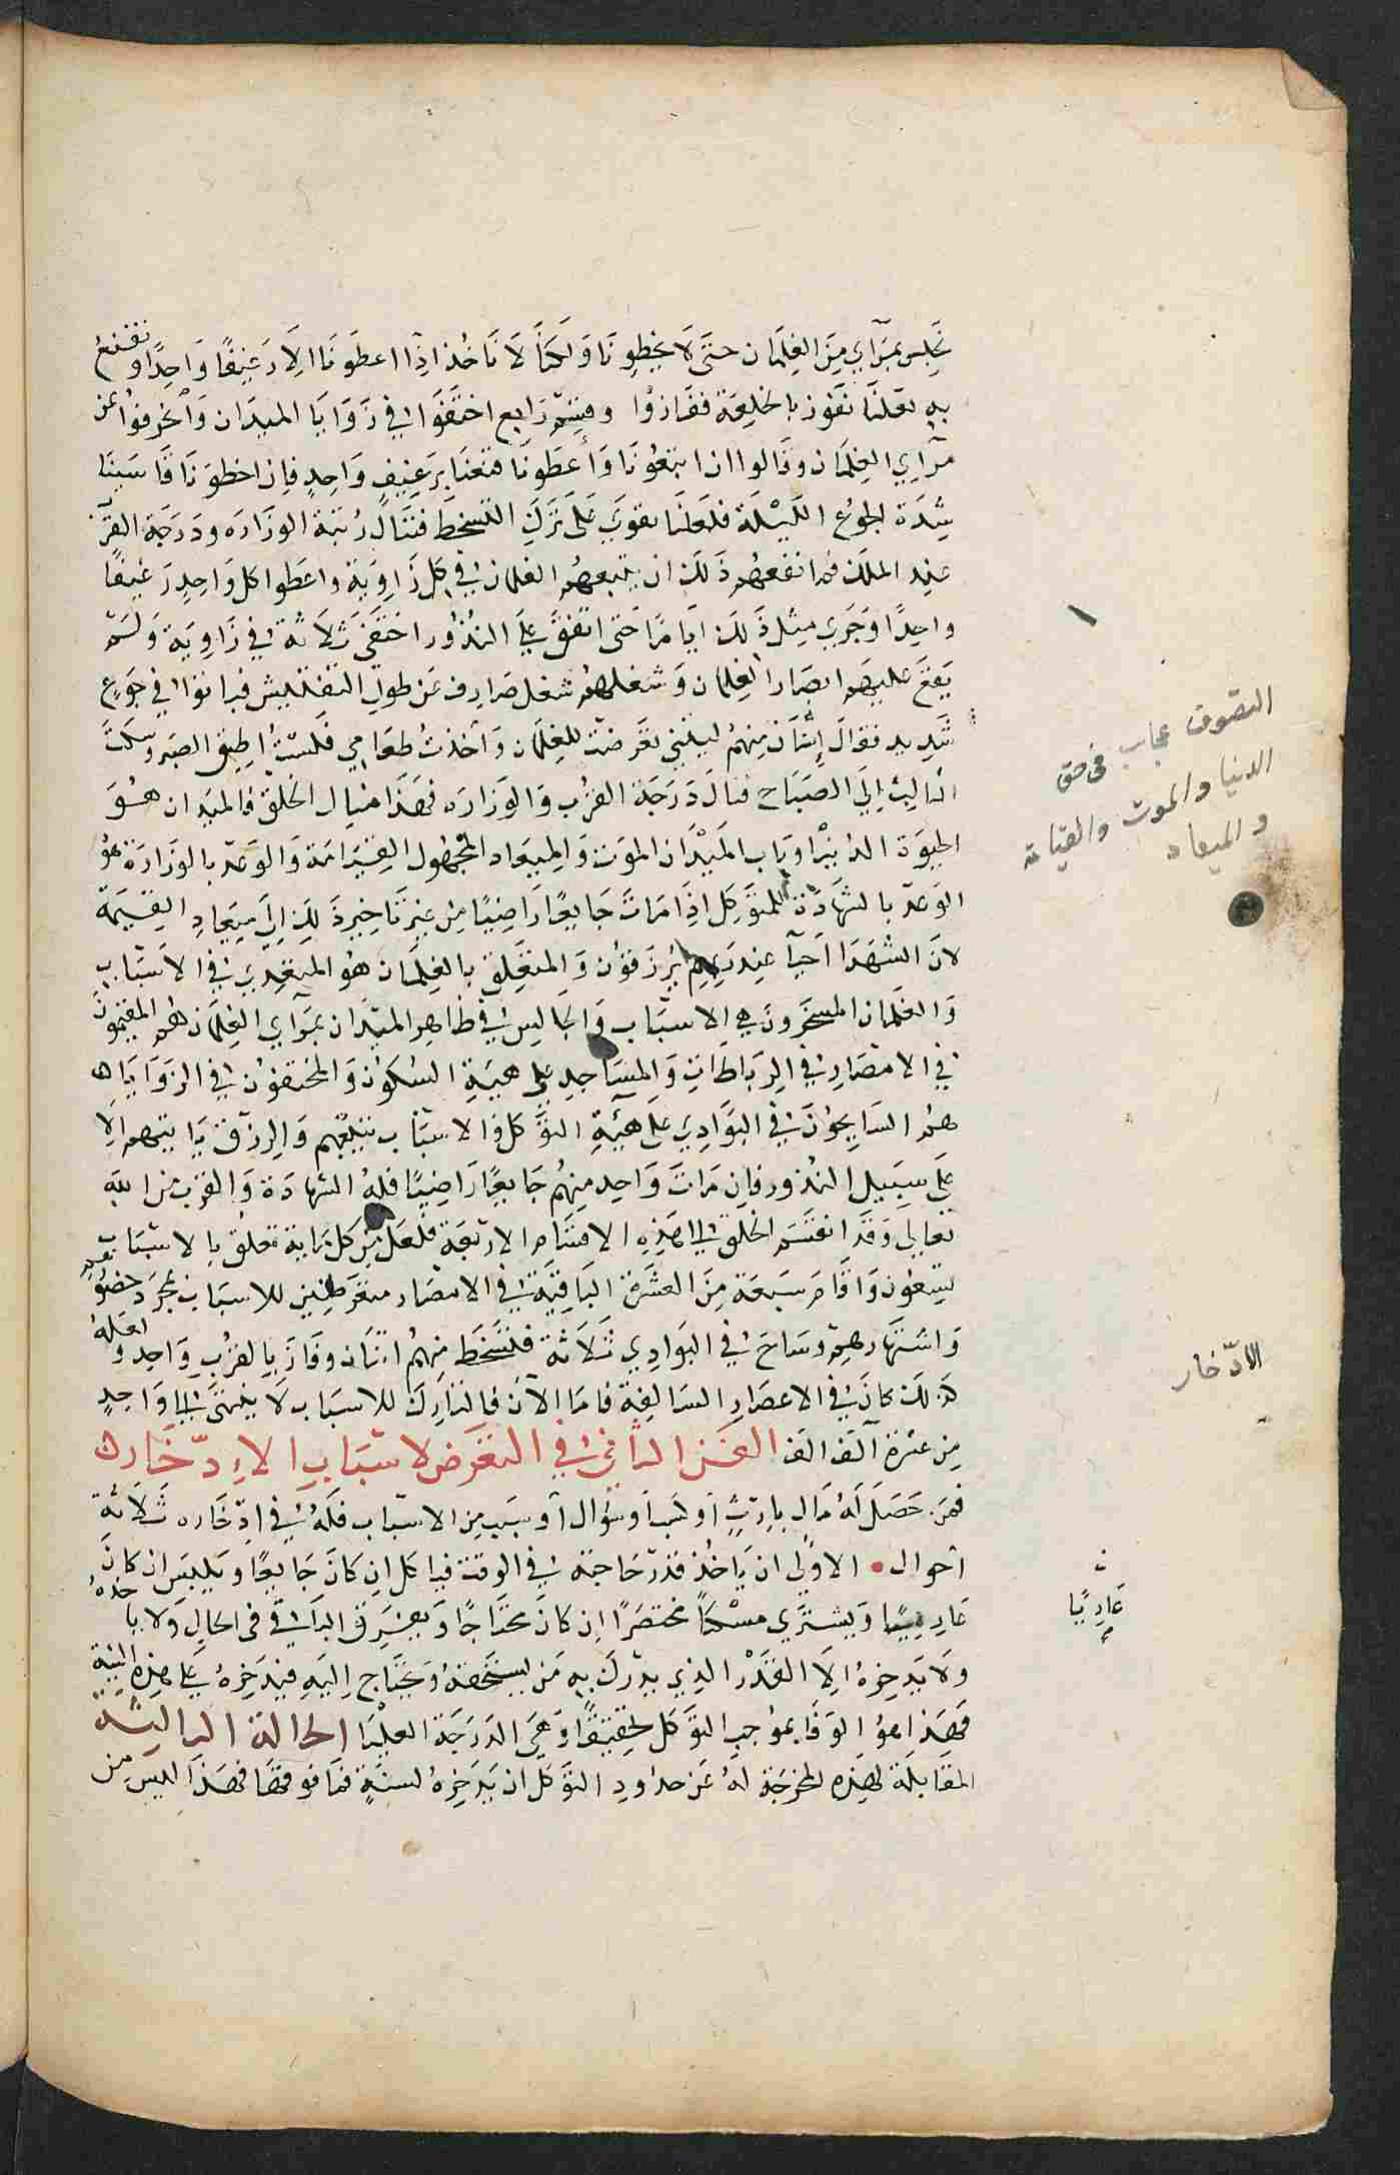 نجلس بمرآي من الغلمان حتى لا يخطونا ولكنا لا ناخذ اذا اعطونا الا رغيفا واحدا ونقنع
به لعلنا نفوز بالخلعة ففازوا وقسم رابع اختفوا في زوايا الميدان وانحرفوا عن
مرآي الغلمان وقالوا ان اتبعونا وأعطونا قنعنا برغيف واحد فان اخطونا قاسينا
شدة الجوع الليلة فلعلنا نقوي على ترك التسخط فننال رتبة الوزاره ودرجة القرب
عند الملك فما نفعهم ذلك ان يتبعهم الغلمان في كل زاوية واعطوا كل واحد رغيفا
واحدا وجري مثل ذلك اياما حتى اتفق علي الندور اختفى ثلاثة في زاوية ولم
يقع عليهم ابصار الغلمان وشغلهم شغل صارف عن طول التفتيش فباتوا في جوع
شديد فقال إثنان منهم ليتني تعرضت للغلمان وأخذت طعامي فلست اطيق الصبر وسكت
الثالث إلى الصباح فنال درجة القرب والوزاره فهذا مثال الخلق والميدان هو
الحيوة الدنيا وباب الميدان الموت والميعاد المجهول القيامة والوعد بالوزارة هو
الوعد بالشهادة للمتوكل اذا مات جايعا راضيا من غير تاخير ذلك الى ميعاد القيمة
لان الشهدا احيآ عند ربهم يرزقون والمتعلق بالغلمان هو المتعدي في الاسباب
والغلمان المسخرون هي الاسباب والجالس في ظاهر الميدان بمرآي الغلمان هم المقيمون
في الامصار في الرباطات والمساجد على هيية السكون والمختفون في الزوايا ها
هم السايحون في البوادي على هيئة التوكل والاسباب تتبعهم والرزق ياتيهم الا
على سبيل الندور فان مات واحد منهم جايعا راضيا فله الشهادة والقرب من الله
تعالى وقد انقسم الخلق الي هذه الاقسام الاربعة فلعل من كل ماية تعلق بالاسباب
تسعون واقام سبعة من العشرة الباقية في الامصار متعرضين للاسباب بمجرد حضورهم
واشتهارهم وساح في البوادي ثلاثة فتسخط منهم اثنان وفاز بالقرب واحد ولعله
كذلك كان في الاعصار السالفة فاما الآن فالتارك للاسباب لا ينتهي الي واحد
من عشرة آلف الف الفن الثاني في التعرض لاسباب الادّخارك
فمن حصل له مال بارث او كسب أو سؤال أو سبب من الاسباب فله في ادخاره ثلاثة
احوال • الاولي ان ياخذ قدر حاجته في الوقت فيا كل ان كان جايعا ويلبس ان كان
عاريا ويشتري مسكنا مختصرا ان كان محتاجا ويفرق الباقي في الحال ولا ياخذه
ولا يدخره الا القدر الذي يدرك به من يستحقه ويحتاج اليه فيدخره علي هذه النية
فهذا هو الوفا بموجب التوكل تحقيقا وهي الدرجة العليا الحالة الثالثة
المقابلة لهذه المخرجة له عن حدود التوكل ان يدخره لسنة فما فوقها فهذا ليس من
التصوف عجاب في حق
الدنيا والموت والقيامة
والميعاد
الادّخار
ن
عَارِيًا